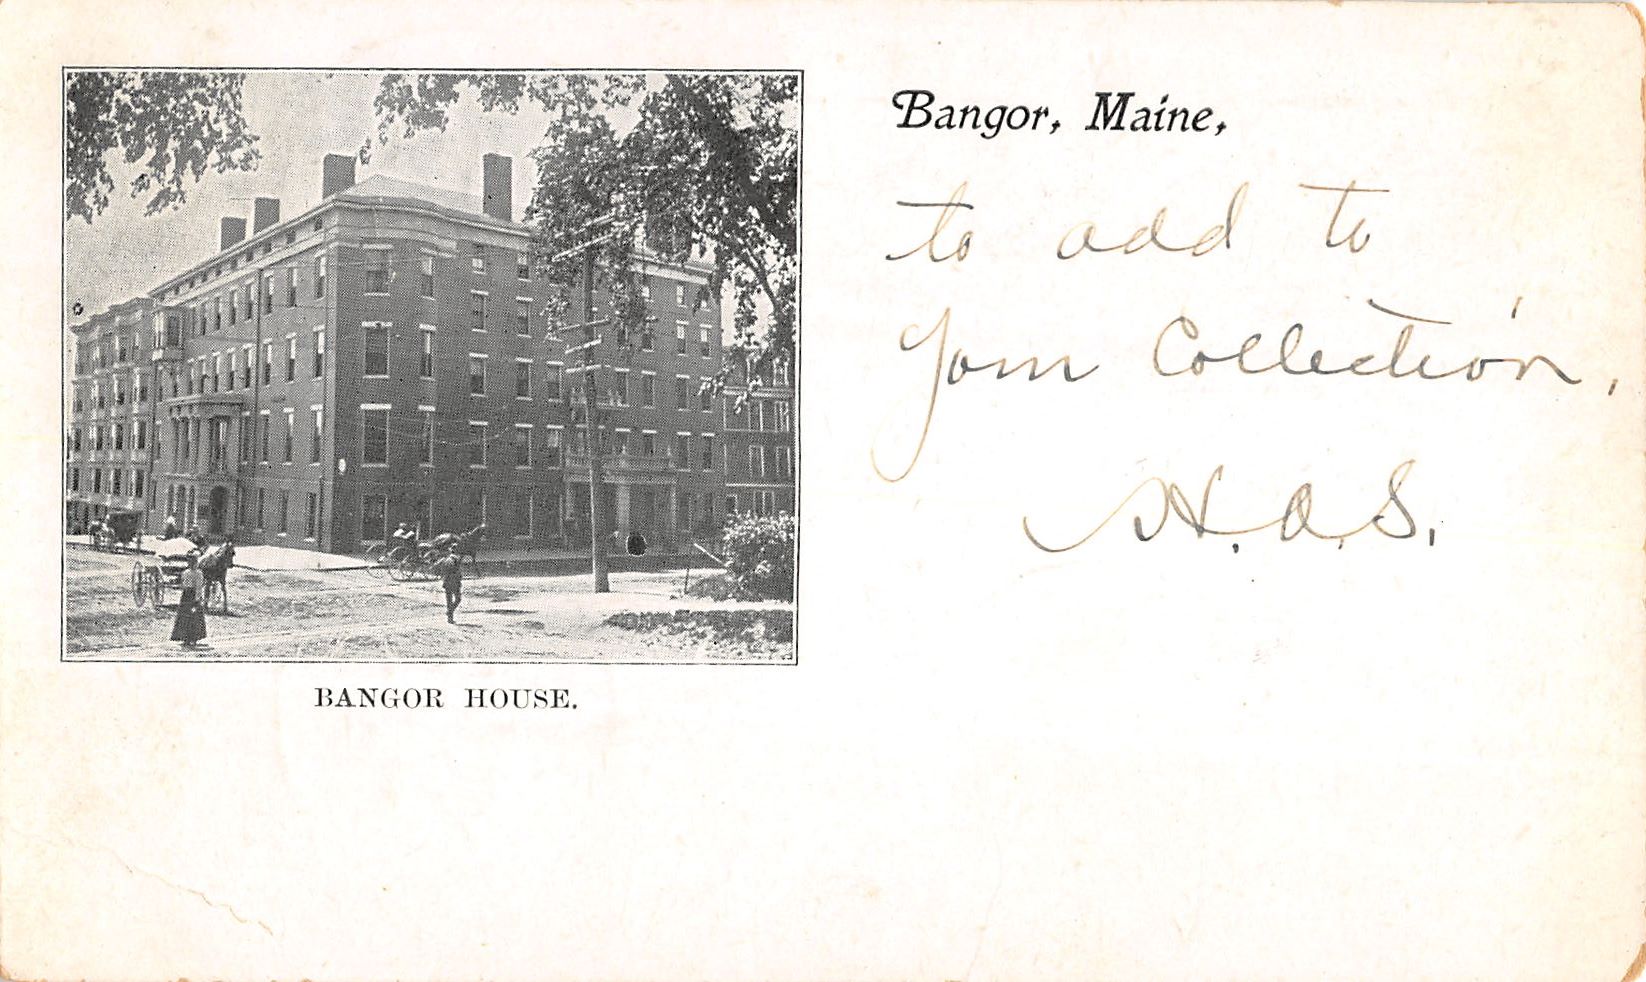 Bangor, Maine,
to add to
your Collection,
H. A. S.
BANGOR HOUSE.